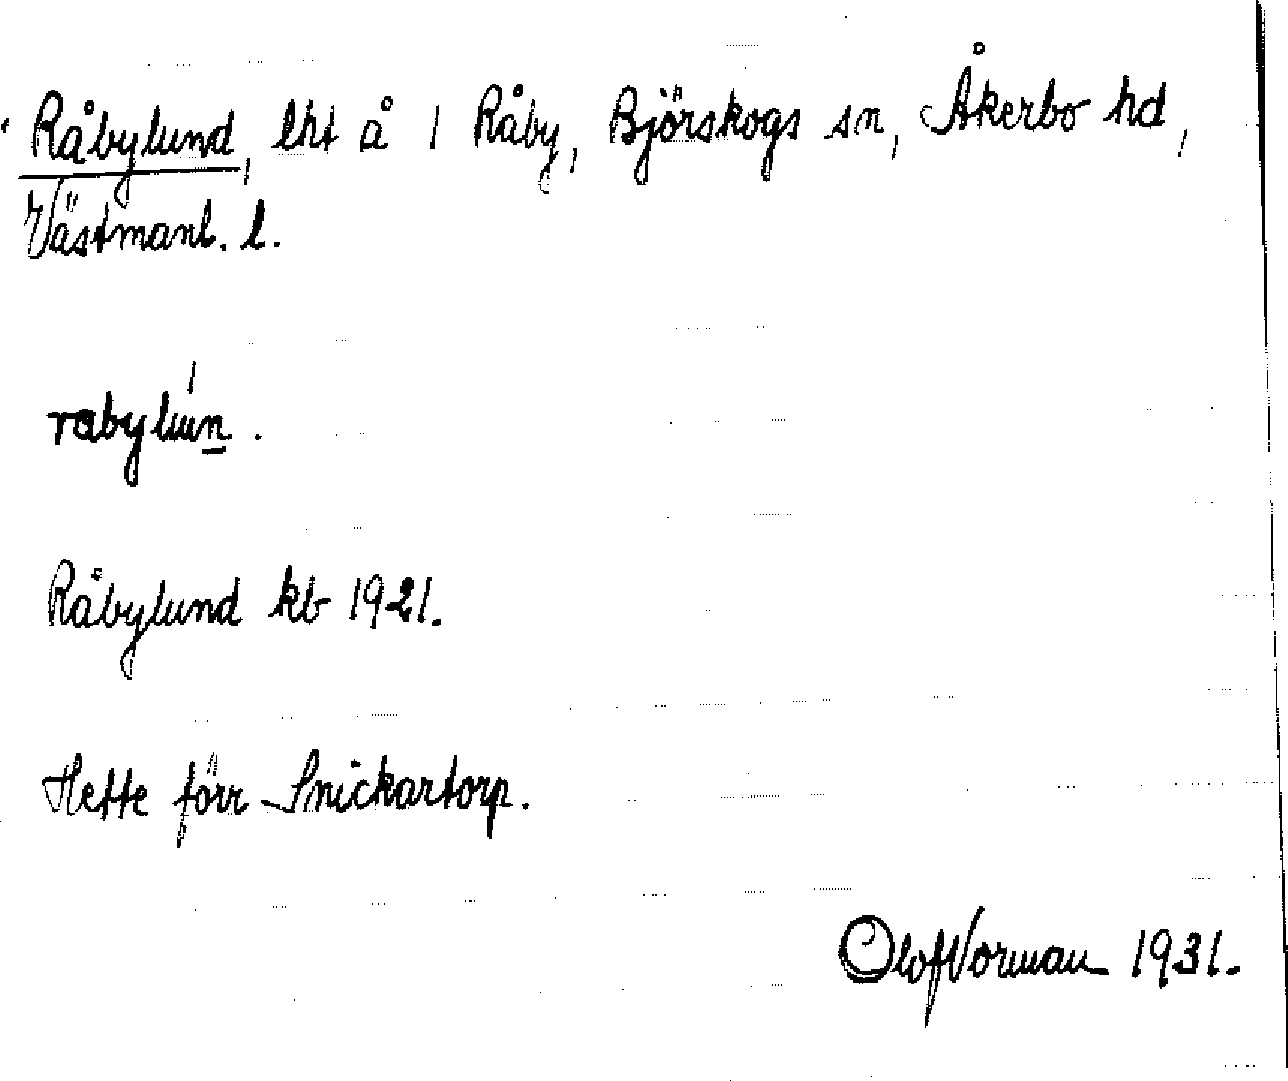 Råbylund, lht å 1 Råby, Björskogs sn, Åkerbo hd,
Västmanl. l.
rabylun.
Råbylund kb 1921.
Hette förr Snickartorp.
Olof Norman 1931.